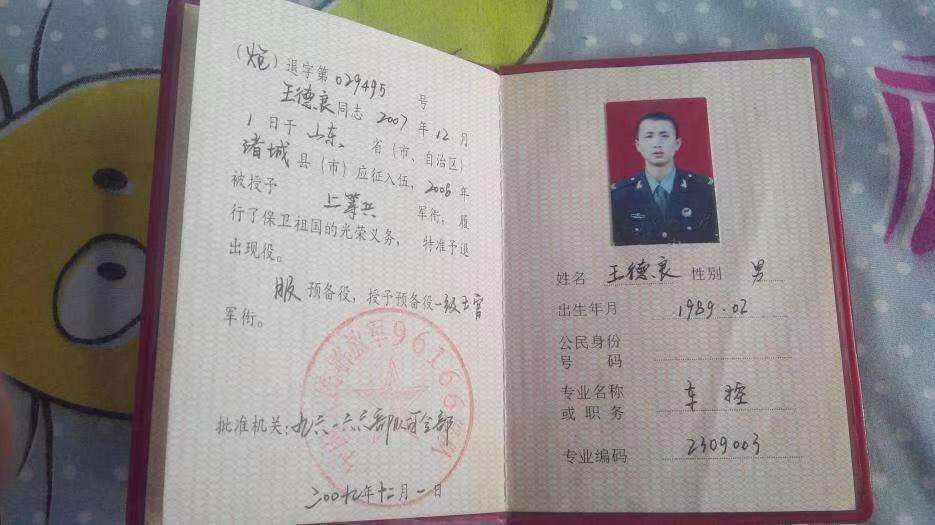 （炮）退字第029495号
王德良同志2007年12月
1日于山东省（市、自治区）
诸城县（市）应征入伍，2008年
被授予上等兵军衔，履
行了保卫祖国的光荣义务，特准予退
出现役。
服预备役，授予预备役一级士官
军衔。
96166
批准机关：九六一六六部队司令部
二00九年十二月一日
姓名 王德良 性别 男
出生年月 1989.02
公民身份
号码
专业名称 车控
或职务
专业编码 2309003